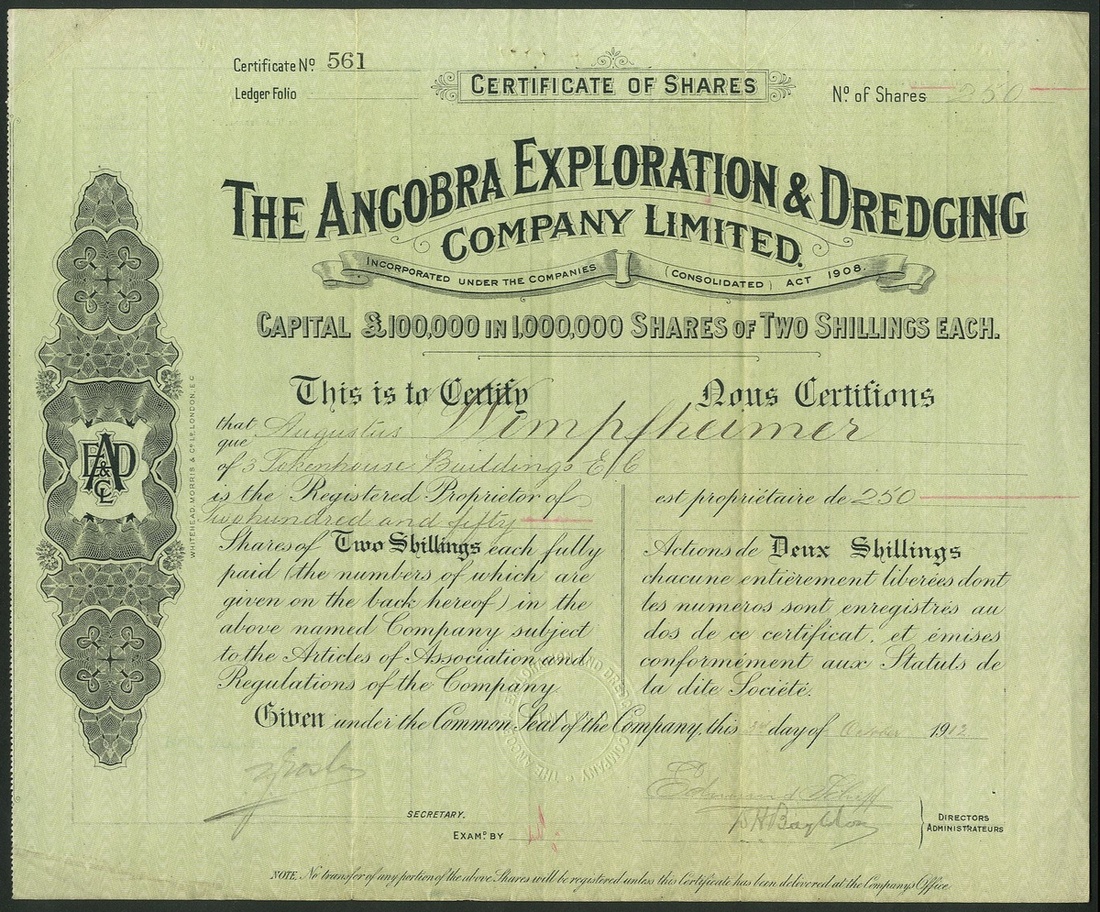 Certificate No. 561
CERTIFICATE OF SHARES
Ledger Folio
No. of Shares 250
THE ANCOBRA EXPLORATION & DREDGING
COMPANY LIMITED.
INCORPORATED UNDER THE COMPANIES (CONSOLIDATED) ACT 1908.
CAPITAL £100,000 IN 1,000,000 SHARES OF TWO SHILLINGS EACH.
This is to Certify
Nous Certifions
that
que Augustus Wimpfheimer
of 3 Tokenhouse Buildings E C
is the Registered Proprietor of
Two hundred and fifty
Shares of Two Shillings each fully
paid (the numbers of which are
given on the back hereof) in the
above named Company subject
to the Articles of Association and
Regulations of the Company.
est propriétaire de 250
Actions de Deux Shillings
chacune entièrement liberées dont
les numeros sont enregistrés au
dos de ce certificat, et émises
conformément aux Statuts de
la dite Société.
Given under the Common Seal of the Company, this day of October 1912
SECRETARY.
EXAMD. BY
Edmund
DIRECTORS
ADMINISTRATEURS
NOTE. No transfer of any portion of the above Shares will be registered unless this Certificate has been delivered at the Company's Office
WHITEHEAD, MORRIS & CO. LD. LONDON, E.C.